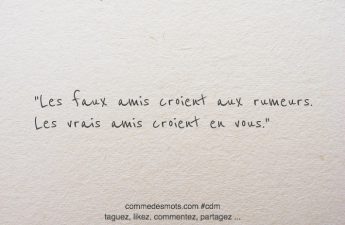 "Les faux amis croient aux rumeurs.
Les vrais amis croient en vous."
commedesmots.com #cdm
taguez, likez, commentez, partagez ...